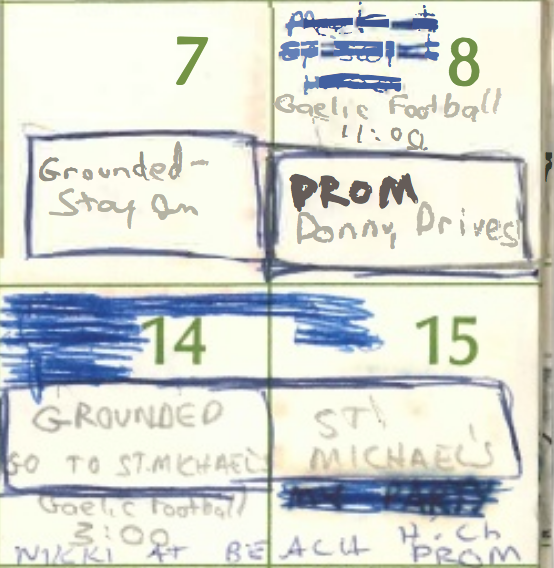 7
Grounded-
Stay In
8
Gaelic Football
11:00
PROM
Donny Drives
14
GROUNDED
GO TO ST.MICHAEL'S
Gaelic Football
3:00
15
ST!
MICHAEL'S
PARTY
NIKKI AT BEACH H.Ch
PROM